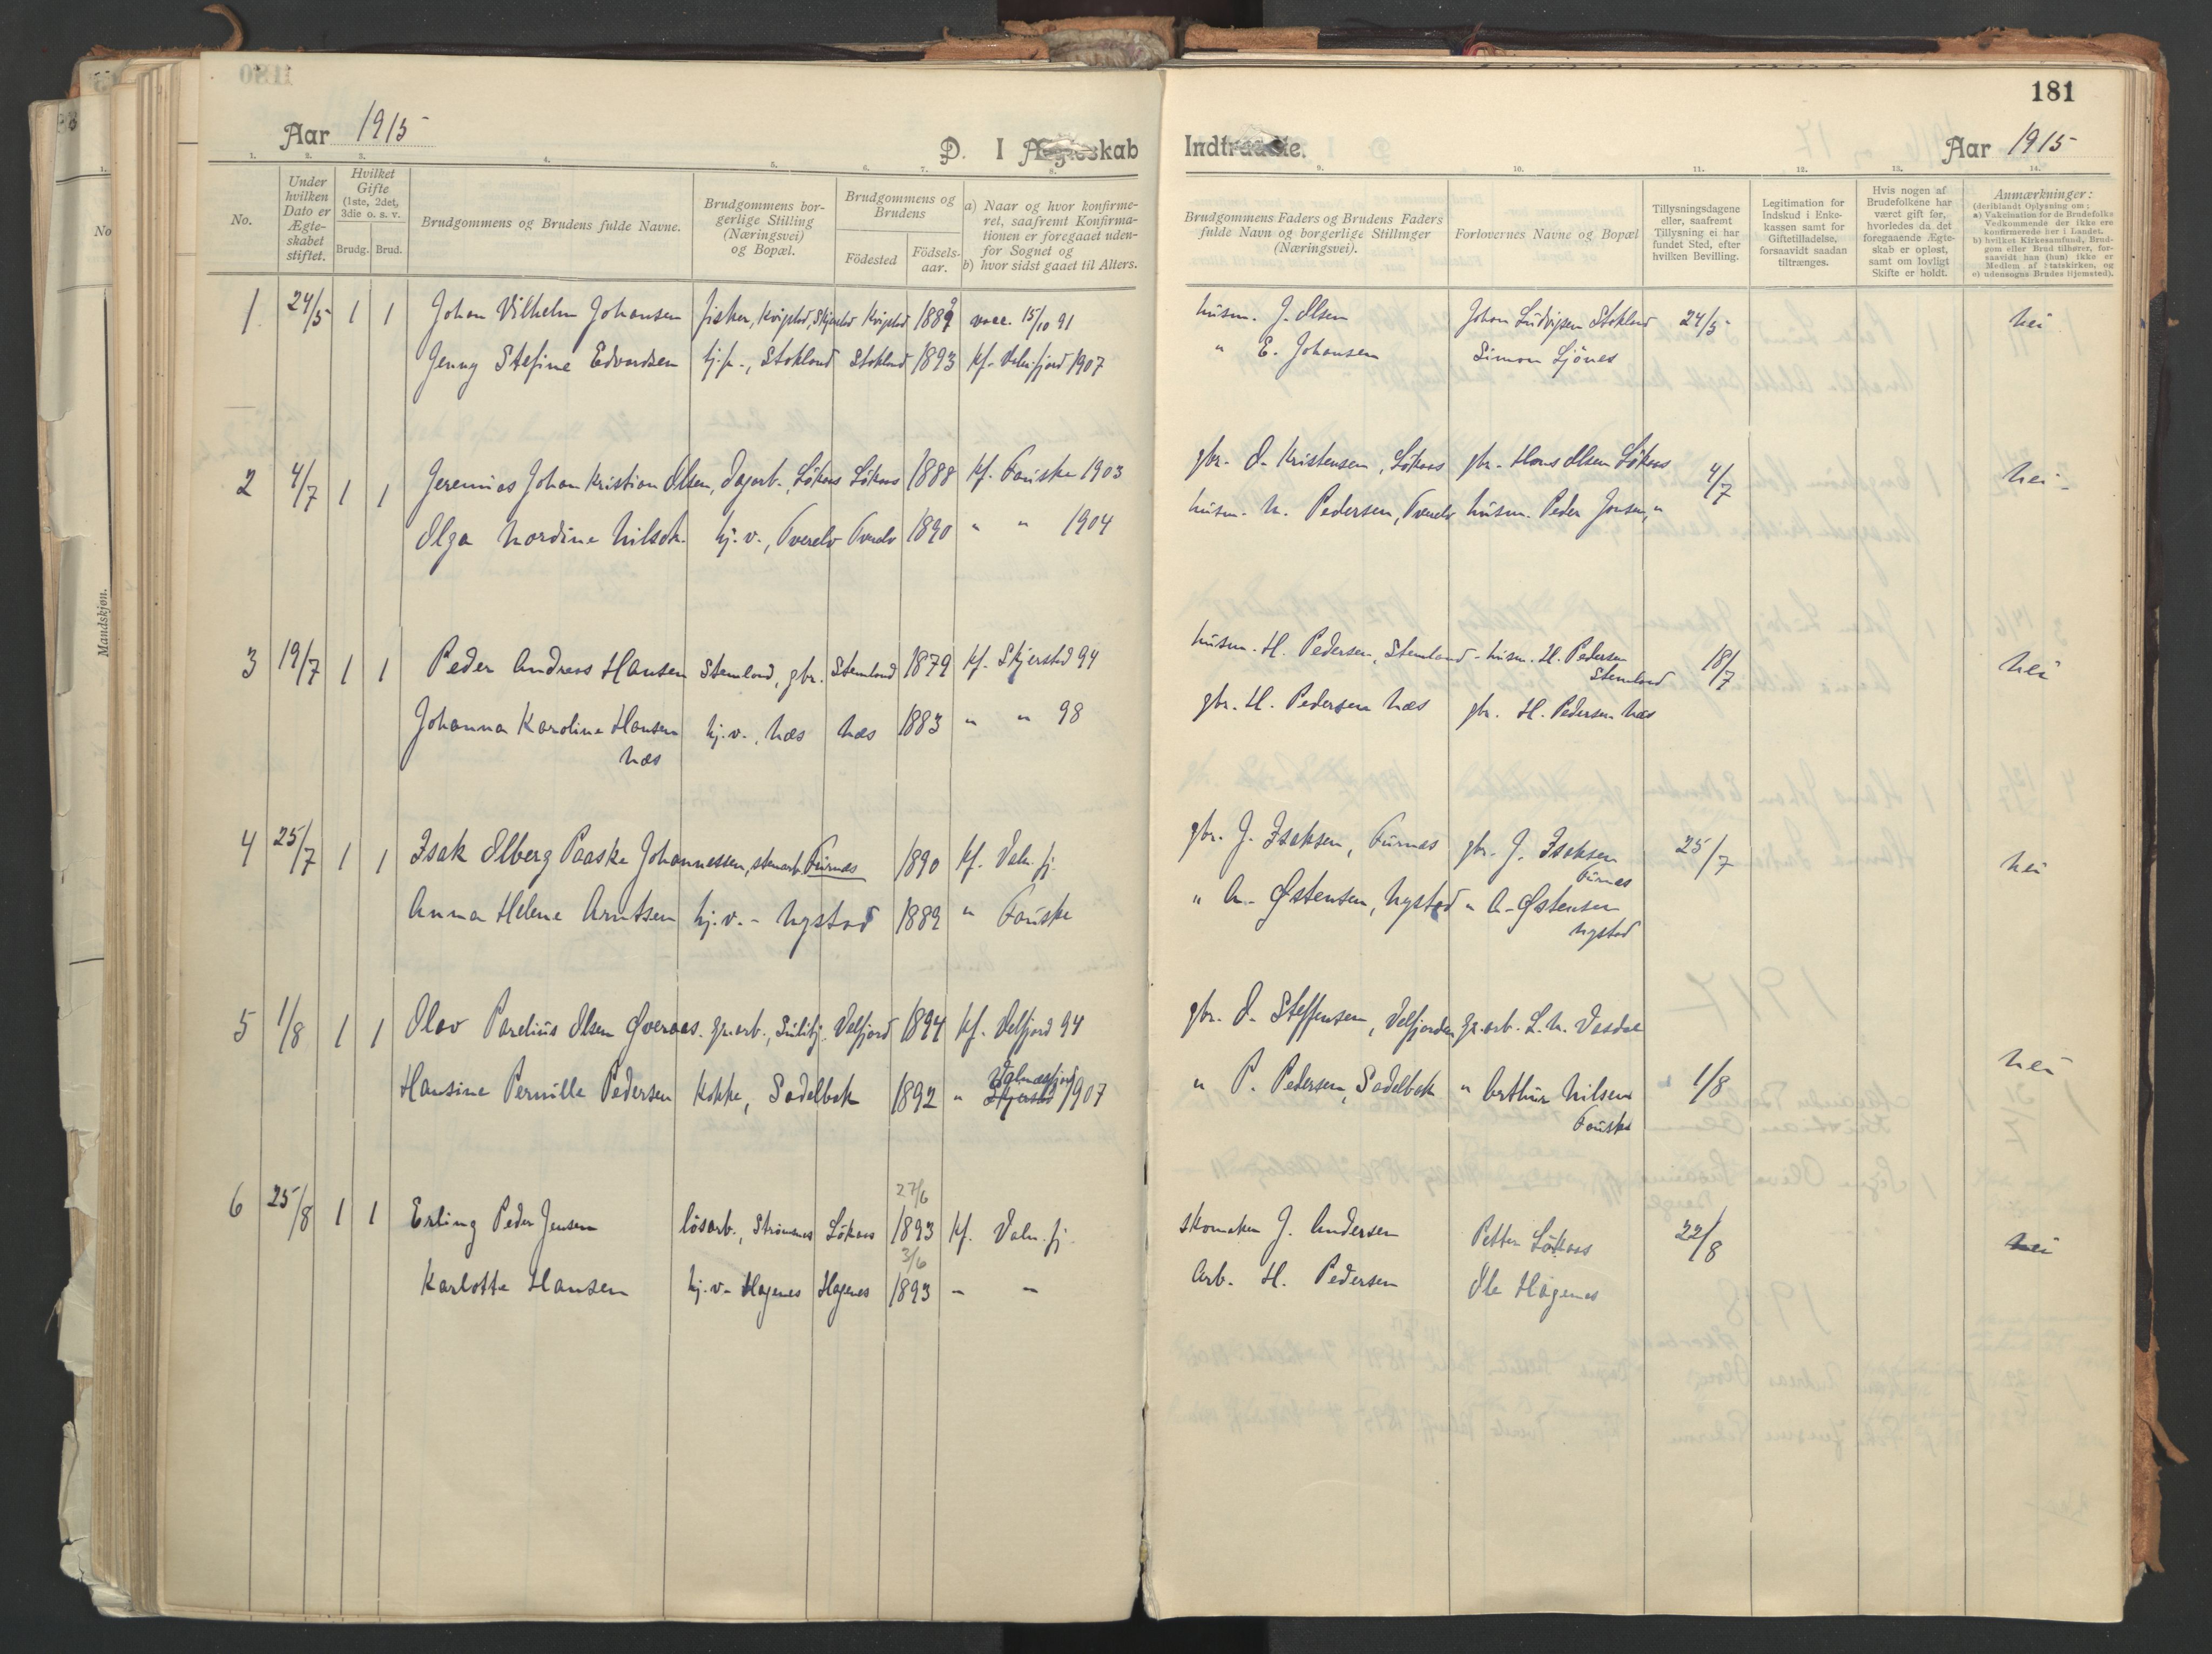 181
Aar 1915
D. I Ægteskab Indtraadte.
Aar 1915
1. 2. 3. 4. 5. 6. 7. 8. 9. 10. 11. 12. 13. 14.
No.
Under hvilken Dato er Ægteskabet stiftet.
Hvilket Gifte (1ste, 2det, 3die o. s. v.
Brudg. Brud.
Brudgommens og Brudens fulde Navne.
Brudgommens borgerlige Stilling (Næringsvei) og Bopæl.
Brudgommens og Brudens
Fødested
Fødselsaar.
a) Naar og hvor konfirmeret, saafremt Konfirmationen er foregaaet udenfor Sognet og
b) hvor sidst gaaet til Alters.
Brudgommens Faders og Brudens Faders fulde Navn og borgerlige Stillinger (Næringsvei).
Forlovernes Navne og Bopæl
Tillysningsdagene eller, saafremt Tillysning ei har fundet Sted, efter hvilken Bevilling.
Legitimation for Indskud i Enkekassen samt for Giftetilladelse, forsaavidt saadan tiltrænges.
Hvis nogen af Brudefolkene har været gift før, hvorledes da det foregaaende Ægteskab er opløst, samt om lovligt Skifte er holdt.
Anmærkninger:
(deriblandt Oplysning om:
a) Vakcination for de Brudefolks Vedkommende der ikke ere konfirmerede her i Landet.
b) hvilket Kirkesamfund, Brudgom eller Brud tilhører, forsaavidt han (hun) ikke er Medlem af Statskirken, og
c) udensogns Brudes Hjemsted).
1 24/5 1 1 Johan Vilhelm Johansen fisker, Kvipstad, Skjerstad Kvipstad 1889 vacc. 15/10 91 husm. J. Olsen Johan Ludvigsen Stokland 24/5 nei
Jenny Stefine Edvardsen hj.p., Stokland Stokland 1893 kf. Valnesfjord 1907 " E. Johansen Simon Sjønes
2 4/7 1 1 Jeremias Johan Kristian Olsen, dagarb., Løkaas Løkaas 1888 kf. Fauske 1903 gbr. O. Kristensen, Løkaas gbr. Hans Olsen Løkaas 4/7 nei
Olga Nordine Nilsdt. hj.v., Tverelv Tverelv 1890 " " 1904 husm. N. Pedersen, Tverelv husm. Peder Jensen, "
3 19/7 1 1 Peder Andreas Hansen Stemland, gbr. Stemland 1879 kf. Skjerstad 94 husm. H. Pedersen, Stemland husm. H. Pedersen Stemland 18/7 nei
Johanna Karoline Hansen Næs hj.v., Næs Næs 1883 " " 98 gbr. H. Pedersen Næs gbr. H. Pedersen Næs
4 25/7 1 1 Isak Elberg Paaske Johannessen, stenarb. Furnes 1890 kf. Valn.fj. gbr. J. Isaksen, Furnes gbr. J. Isaksen Furnes 25/7 nei
Anna Helene Arntsen hj.v. - Nystad 1889 " Fauske " A. Østensen, Nystad " A. Østensen Nystad
5 1/8 1 1 Olav Parelius Olsen Øveraas. gr.arb., Sulitj. Velfjord 1894 kf. Velfjord 94 gbr. O. Steffensen, Velfjorden gr.arb. L. N. Vasdal
Hansine Pernille Pedersen Kokke, Sadelbak 1892 " Skjerstad Valnesfjord 1907 " P. Pedersen, Sadelbak " Arthur Nilsen Fauske 1/8 nei
6 25/8 1 1 Erling Peder Jensen løsarb., Strømsnes Løkaas 27/6 1893 kf. Valn.fj. skomaker J. Andersen Petter Løkaas 22/8 nei
Karlotte Hansen hj.v. Hagenes Hagenes 3/6 1893 - - Arb. H. Pedersen Ole Hagenes